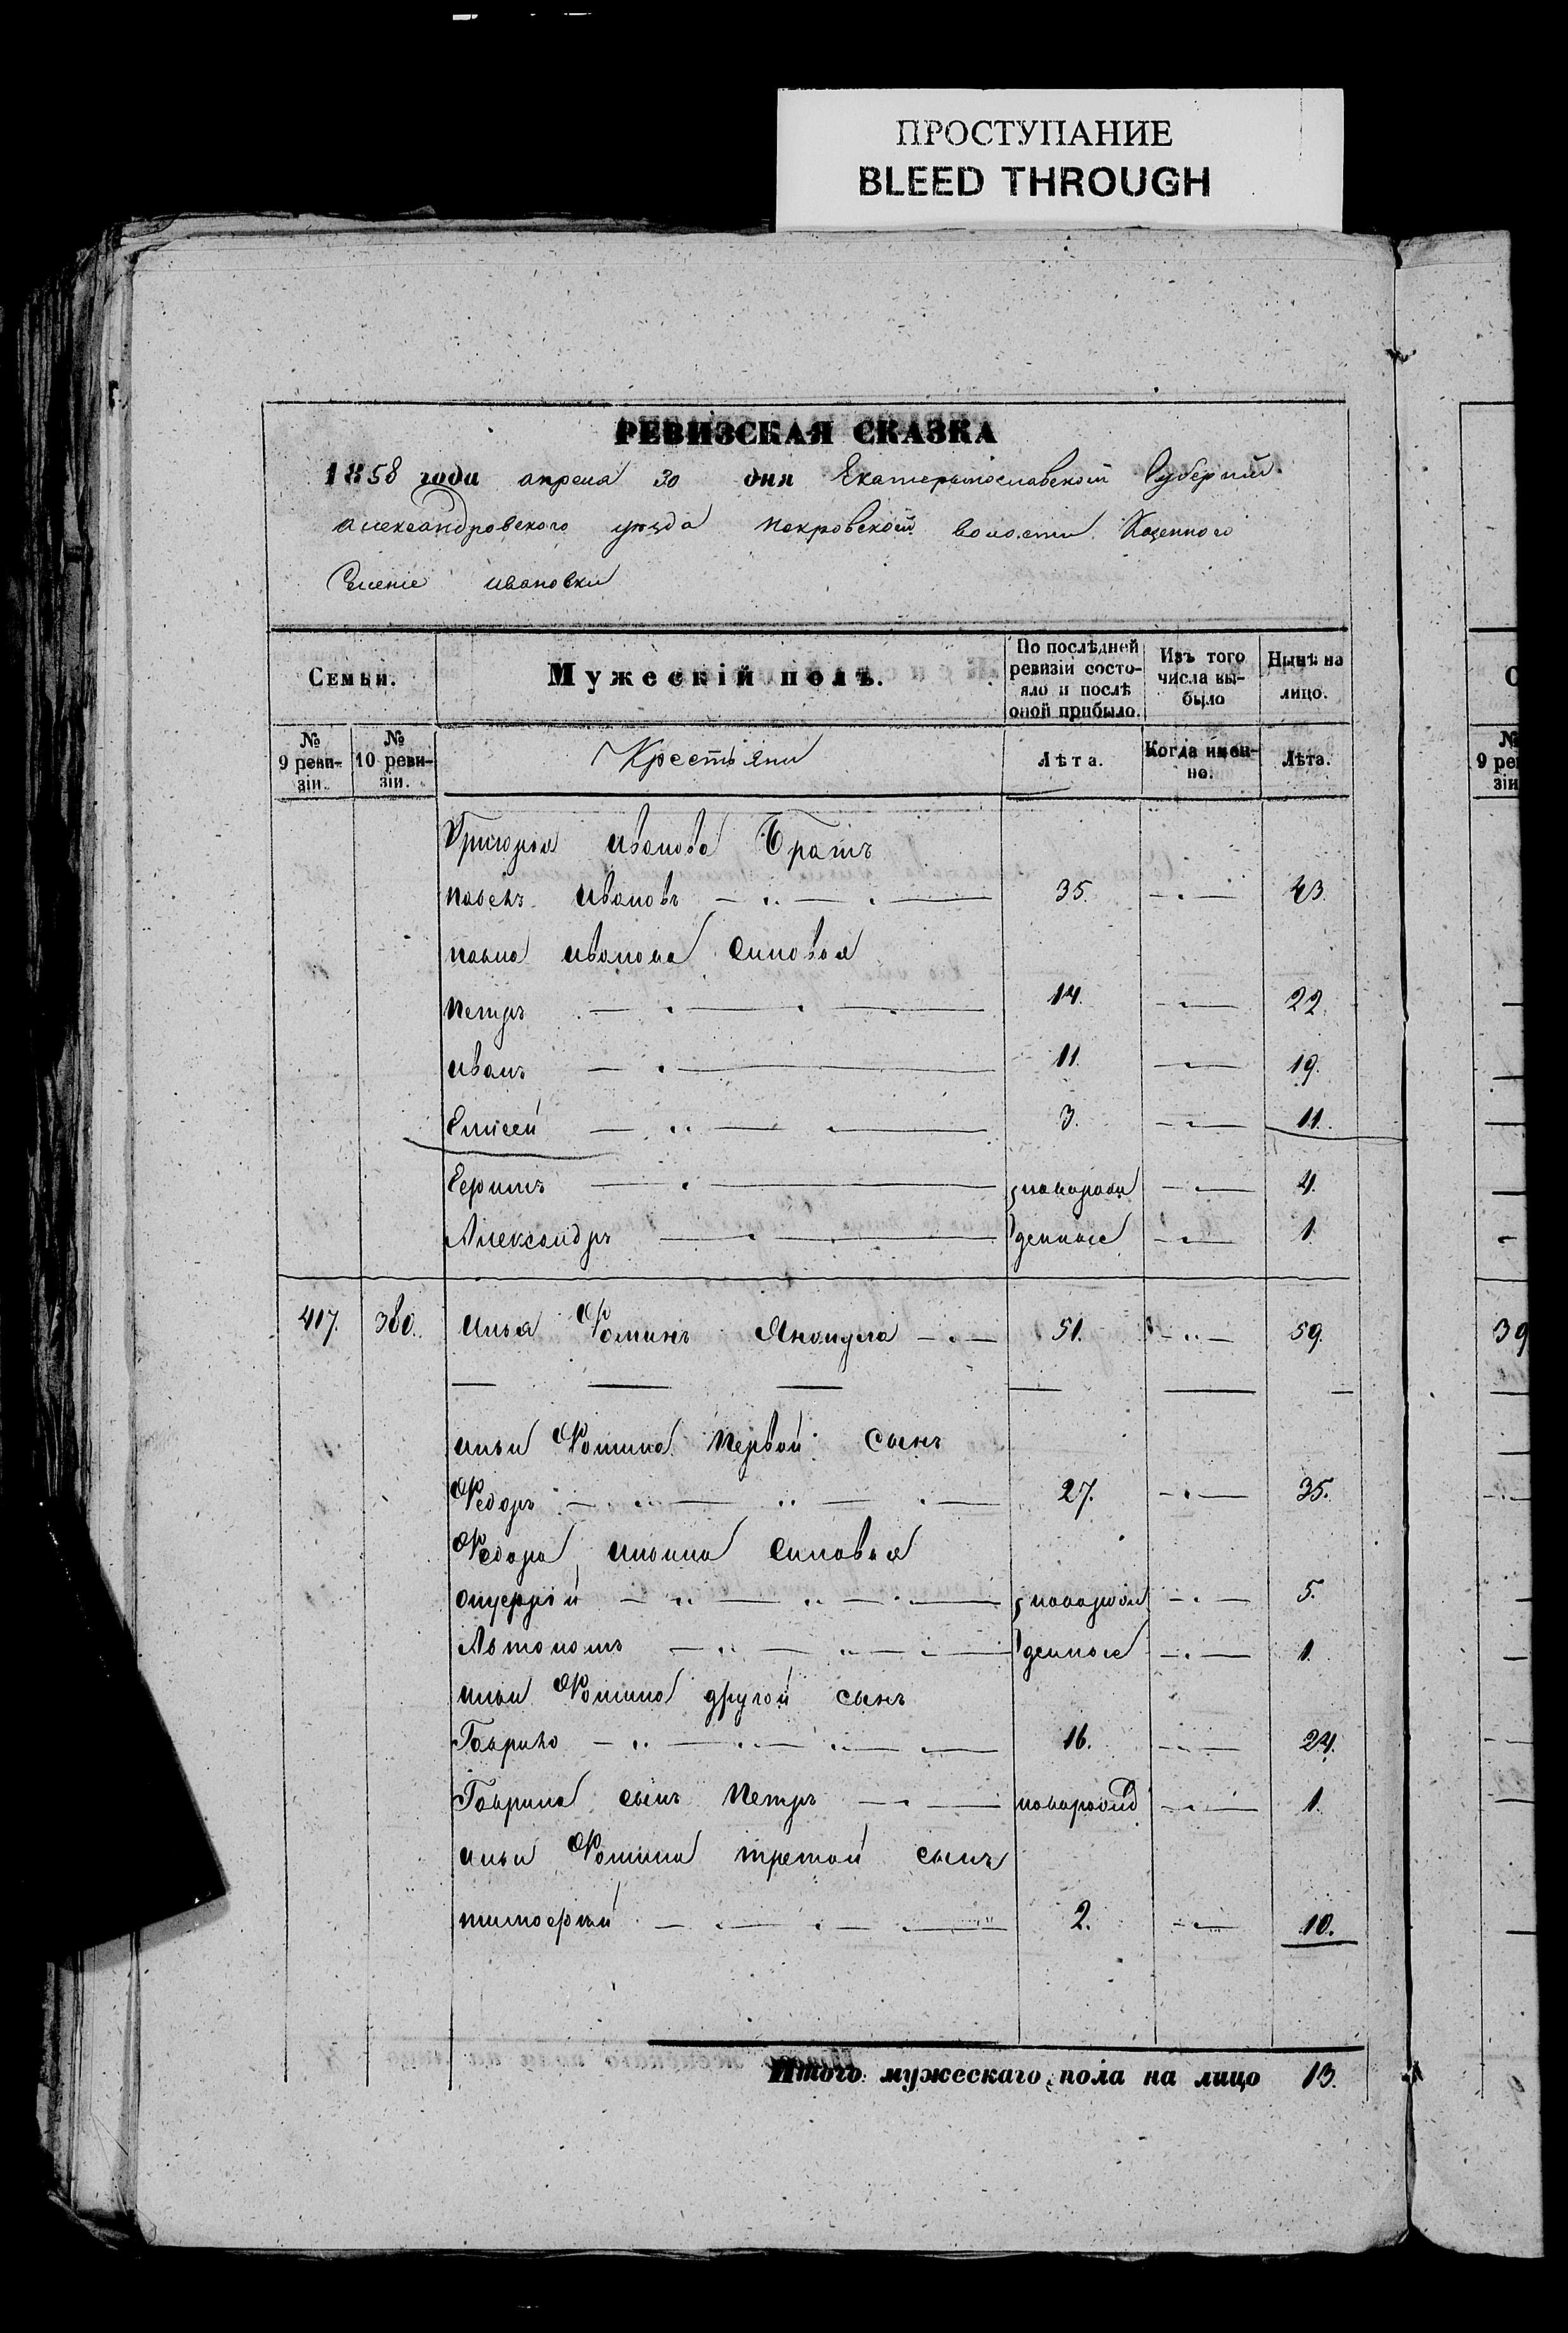 ПРОСТУПАНИЕ
BLEED THROUGH
РЕВИЗСКАЯ СКАЗКА
1858 года апреля 30 дня Екатеринославской Губерніи
Александровского уезда Покровской волости Казенного
Селеніе Ивановки
Семьи. Мужескій полъ. По послѣдней ревизіи состояло и послѣ оной прибыло. Изъ того числа выбыло Нынѣ на лицо.
№ 9 ревизіи. № 10 ревизіи. Крестьяни Лѣта. Когда именно. Лѣта.
Григория Иванова Братъ
Павелъ Ивановъ 35. 43.
Павла Иванова Синовья
Петръ 14. 22.
Иванъ 11. 19.
Елисей 3. 11.
Ефимъ новорож 4.
Александръ денные 1
417. 360. Илья Фоминъ 51. 59.
Ильи Фомина Первой Сынъ
Федоръ 27. 35.
Федора Ильина Синовья
Онуфрій новорож 5.
Автономъ денные 1.
Ильи Фомина другой сынъ
Гаврило 16. 24.
Гаврила сынъ Петръ новорожд 1.
Ильи Фомина третой сынъ
Тимофей 2. 10.
Итого мужескаго пола на лицо 13.
39